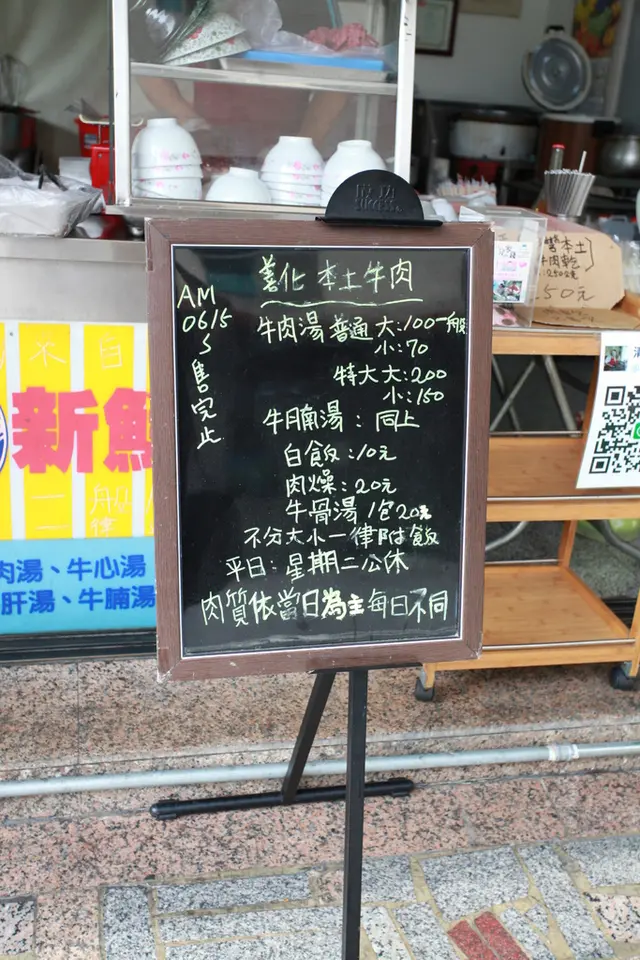 善化 本土牛肉
AM
0615
〜
售完止
牛肉湯 普通 大:100一般
小:70
特大 大:200
小:150
牛腩湯:同上
白飯:10元
肉燥:20元
牛骨湯 1包20元
不分大小一律附飯
平日:星期二公休
肉質依當日為主每日不同
新鮮
肉湯、牛心湯
肝湯、牛腩湯
本土
牛肉乾
50元